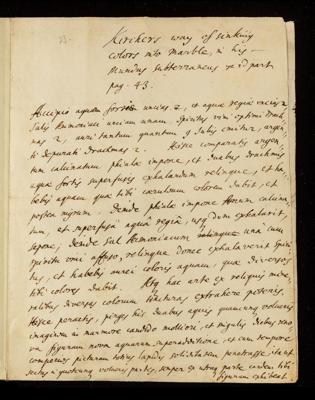 Kirchers way of sinking
colors into marble, in his
Mundus Subterraneus 2d part
pag. 43.
Accipio aquam fortis uncias 2, et aquæ regiæ uncias 2
Salis Armoniaci unciam unam. Spiritus vini optimi drach-
mas 2, auri tantum quantum 9 Julis emitur, argen-
ti depurati drachmas 2. Hisce comparatis argen-
tum calcinatum phiala impone, et duabus drachmis
aqua fortis superfusis exhalandum relinque, et ha-
bebis aquam quæ tibi cæruleum colorem dabit, et
postea nigrum. Deinde phiala impone aurum calcina-
tum, et superfusa aqua regia, usq dum exhalarit,
sepone; deinde Sal Armoniacum relinque una cum
spiritu vini affuso, relinque donec exhalaverit Spiri-
tus, et habebis aurei coloris aquam, quæ diversos
tibi colores dabit. Atq hac arte ex reliquis mine-
ralibus diversas colorum tincturas extrahere poteris.
Hisce peractis, per has duabus aquis quamcunq volueris
imaginem in marmore candido molliori, et singulis diebus reno-
va figuram nova aquarum superadditione, et cum tempore
compones picturam totius lapidis soliditatem penetrasse, ita ut
sectus in quotcunq volueris partes, semper ex utraq parte eandem tibi
figuram exhibeat